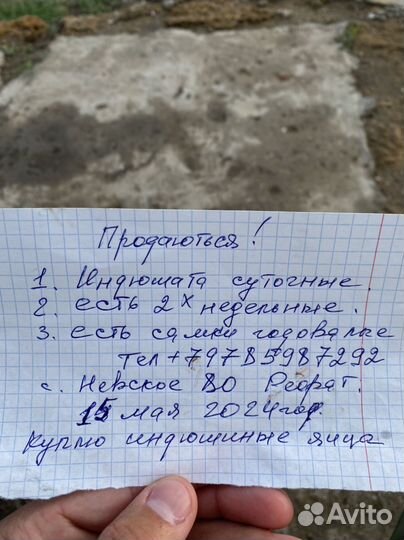 Продаються!
1. Индюшата суточные.
2. есть 2х недельные.
3. есть самки годовалые
тел +79785987292
с. Невское 80 Рефат.
15 мая 2024 год.
куплю индюшинные яйца
Avito